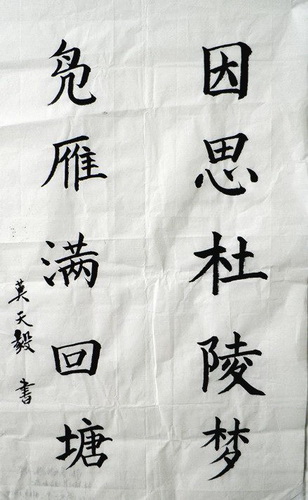 因思杜陵梦
凫雁满回塘
莫天毅 书